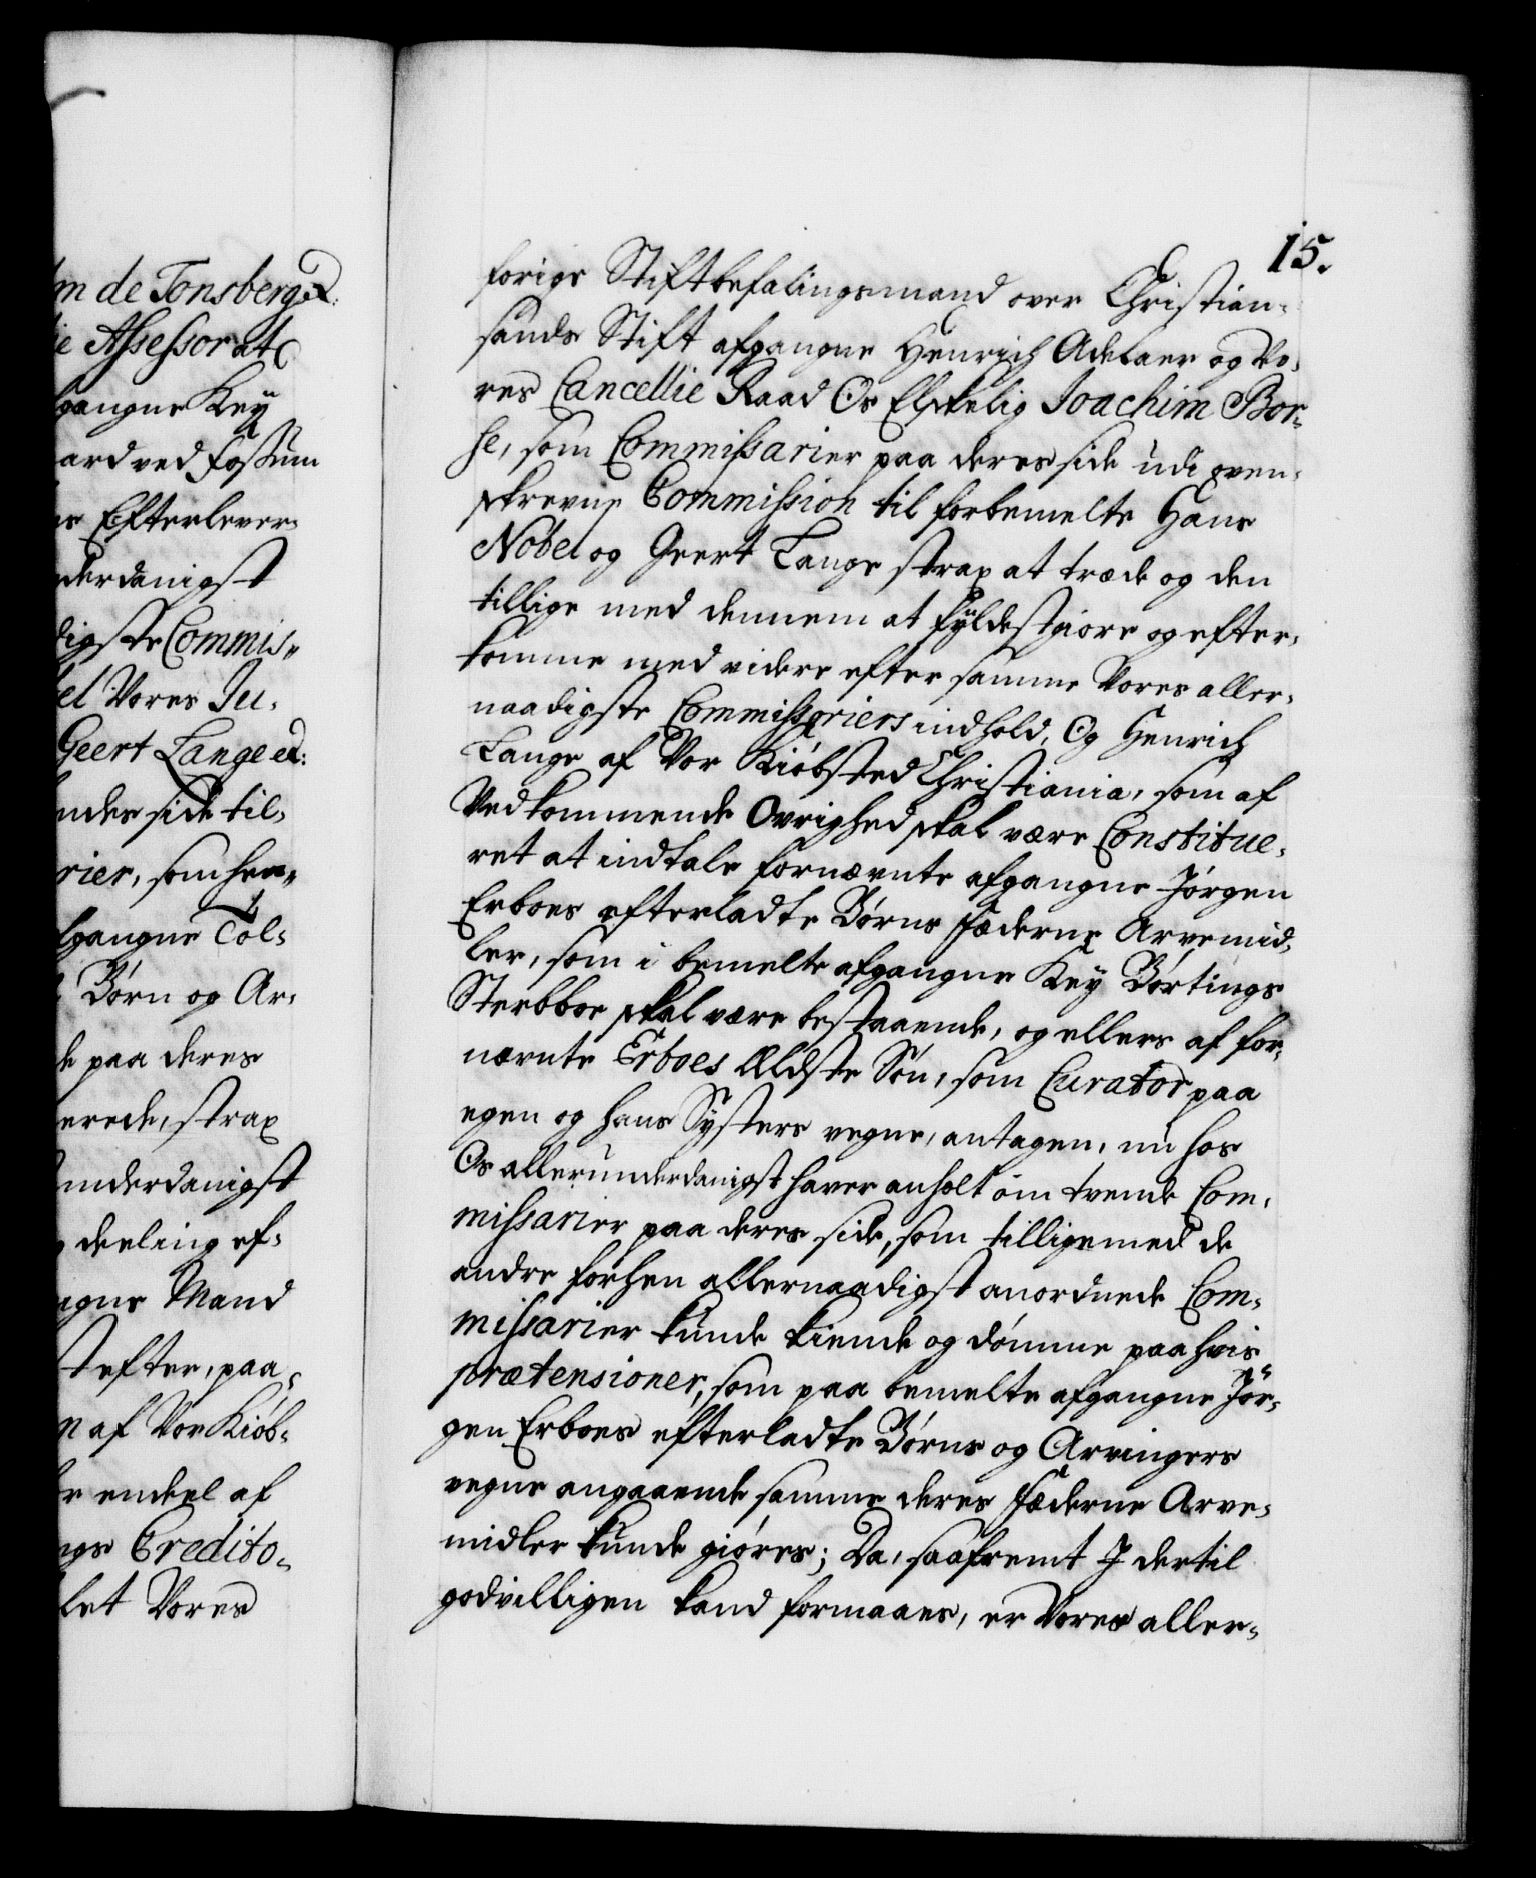 m de Tonsberg et
ie Assessorat
gangne Key
aard ved Fossum
es Efterlever-
derdanigst
digste Commis-
el Vores Ju-
Geert Lange et
ndes side til-
rier, som hen-
fgangne Tol-
Børn og Ar-
de paa deres
erede, strax
underdanigst
deeling ef-
ngne Mand
t efter, paa-
n af Vor Kiøb-
r endeel af
ngs Credito-
let Vores
15.
forige Stiftbefalingsmand over Christian-
sands Stift afgangne Henrich Adelaer og Vo-
res Cancellie Raad Os Elskelig Joachim Bor-
se, som Commissarier paa deres side udi oven-
skrevne Commission til forbemelte Hans
Nobel og Geert Lange strax at træde og den
tillige med dennem at fyldestgiøre og efter-
komme med videre efter samme Vores aller-
naadigste Commissoriers indhold, Og Henrich
Lange af Vor Kiøbsted Christiania, som af
Vedkommende Øvrighed skal være Constitue-
ret at indtale fornævnte afgangne Jørgen
Erboes efterladte Børns Fæderne Arvemid-
ler, som i bemelte afgangne Key Børtings
Sterbboe skal være bestaaende, og ellers af for-
nævnte Erboes Ældste Søn, som Curator paa
egen og hans Systers vegne, antagen, nu hos
Os allerunderdanigst haver anholt om tvende Com-
missarier paa deres side, som tilligemed de
andre forhen allernaadigst anordnede Com-
missarier kunde kiende og dømme paa hvis
prætensioner, som paa bemelte afgangne Jør-
gen Erboes efterladte Børns og Arvingers
vegne angaaende samme deres Fæderne Arve-
midler kunde giøres; Da, saafremt I dertil
godvilligen kand formaaes, er Vores aller-